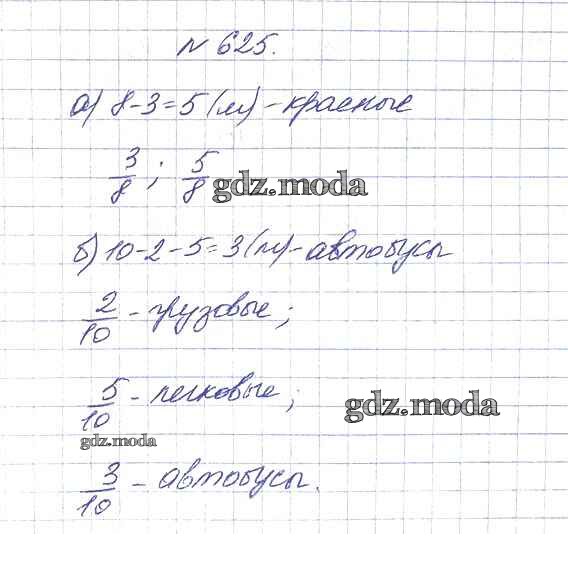 № 625.
а) 8-3=5 (м) - красные
3/8 ; 5/8 gdz.moda
б) 10-2-5=3 (м) - автобусы
2/10 - грузовые ;
5/10 - легковые ; gdz.moda
gdz.moda
3/10 - автобусы.